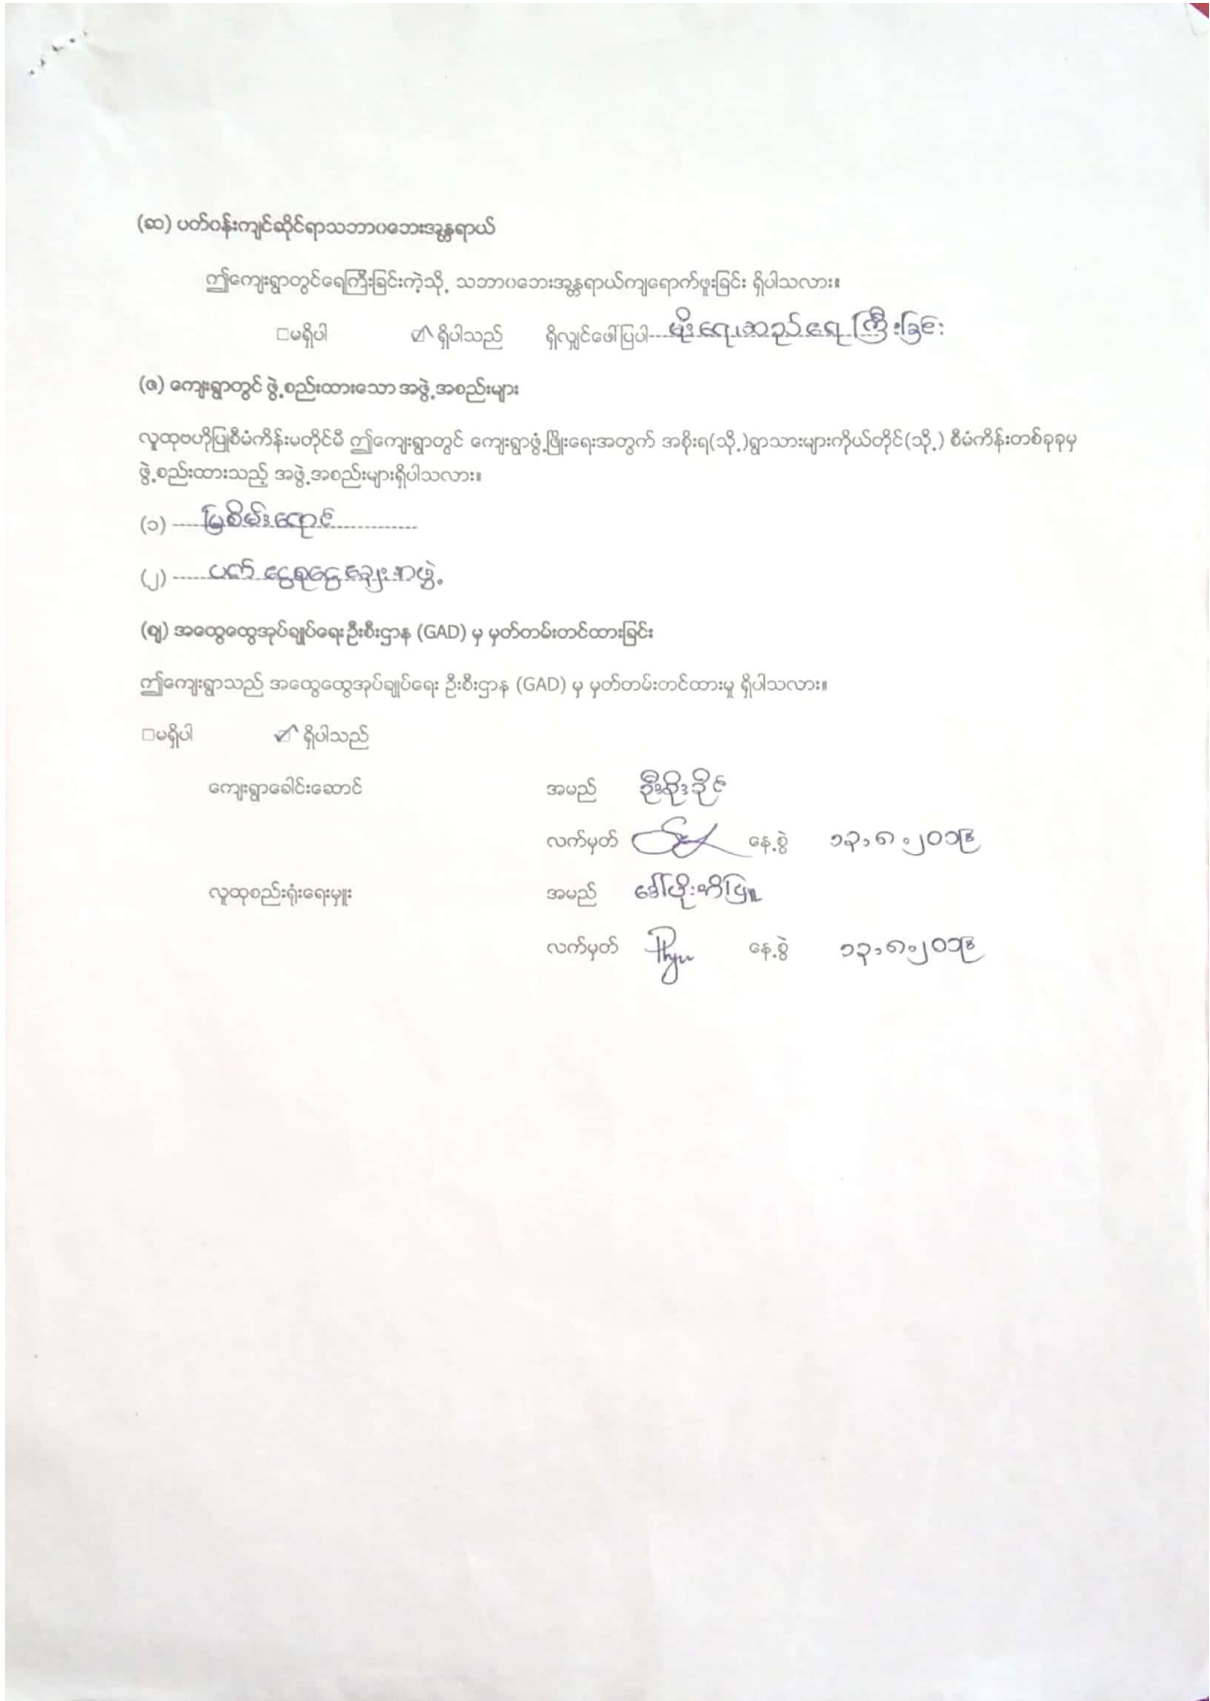 (ဆ) ပတ်ဝန်းကျင်ဆိုင်ရာသဘာဝဘေးအန္တရာယ်
ဤကျေးရွာတွင်ရေကြီးခြင်းကဲ့သို့ သဘာဝဘေးအန္တရာယ်ကျရောက်ဖူးခြင်း ရှိပါသလား။
□မရှိပါ ☑ ရှိပါသည် ရှိလျှင်ဖော်ပြပါ မိုးရေ ရေကြီးခြင်း
(ဇ) ကျေးရွာတွင် ဖွဲ့စည်းထားသော အဖွဲ့အစည်းများ
လူထုဗဟိုပြုစီမံကိန်းမတိုင်မီ ဤကျေးရွာတွင် ကျေးရွာဖွံ့ဖြိုးရေးအတွက် အစိုးရ(သို့)ရွာသားများကိုယ်တိုင်(သို့) စီမံကိန်းတစ်ခုခုမှ
ဖွဲ့စည်းထားသည့် အဖွဲ့အစည်းများရှိပါသလား။
(၁) မြစိမ်းရောင်
(၂) ပတ် ငွေစုငွေချေးအဖွဲ့
(ဈ) အထွေထွေအုပ်ချုပ်ရေးဦးစီးဌာန (GAD) မှ မှတ်တမ်းတင်ထားခြင်း
ဤကျေးရွာသည် အထွေထွေအုပ်ချုပ်ရေး ဦးစီးဌာန (GAD) မှ မှတ်တမ်းတင်ထားမှု ရှိပါသလား။
□မရှိပါ ☑ ရှိပါသည်
ကျေးရွာခေါင်းဆောင် အမည် ဦးစိုးခိုင်
လက်မှတ် နေ့စွဲ ၁၃.၈.၂၀၁၉
လူထုစည်းရုံးရေးမှူး အမည် ဒေါ်ဖြိုးကိုဖြူ
လက်မှတ် Phyu နေ့စွဲ ၁၃.၈.၂၀၁၉